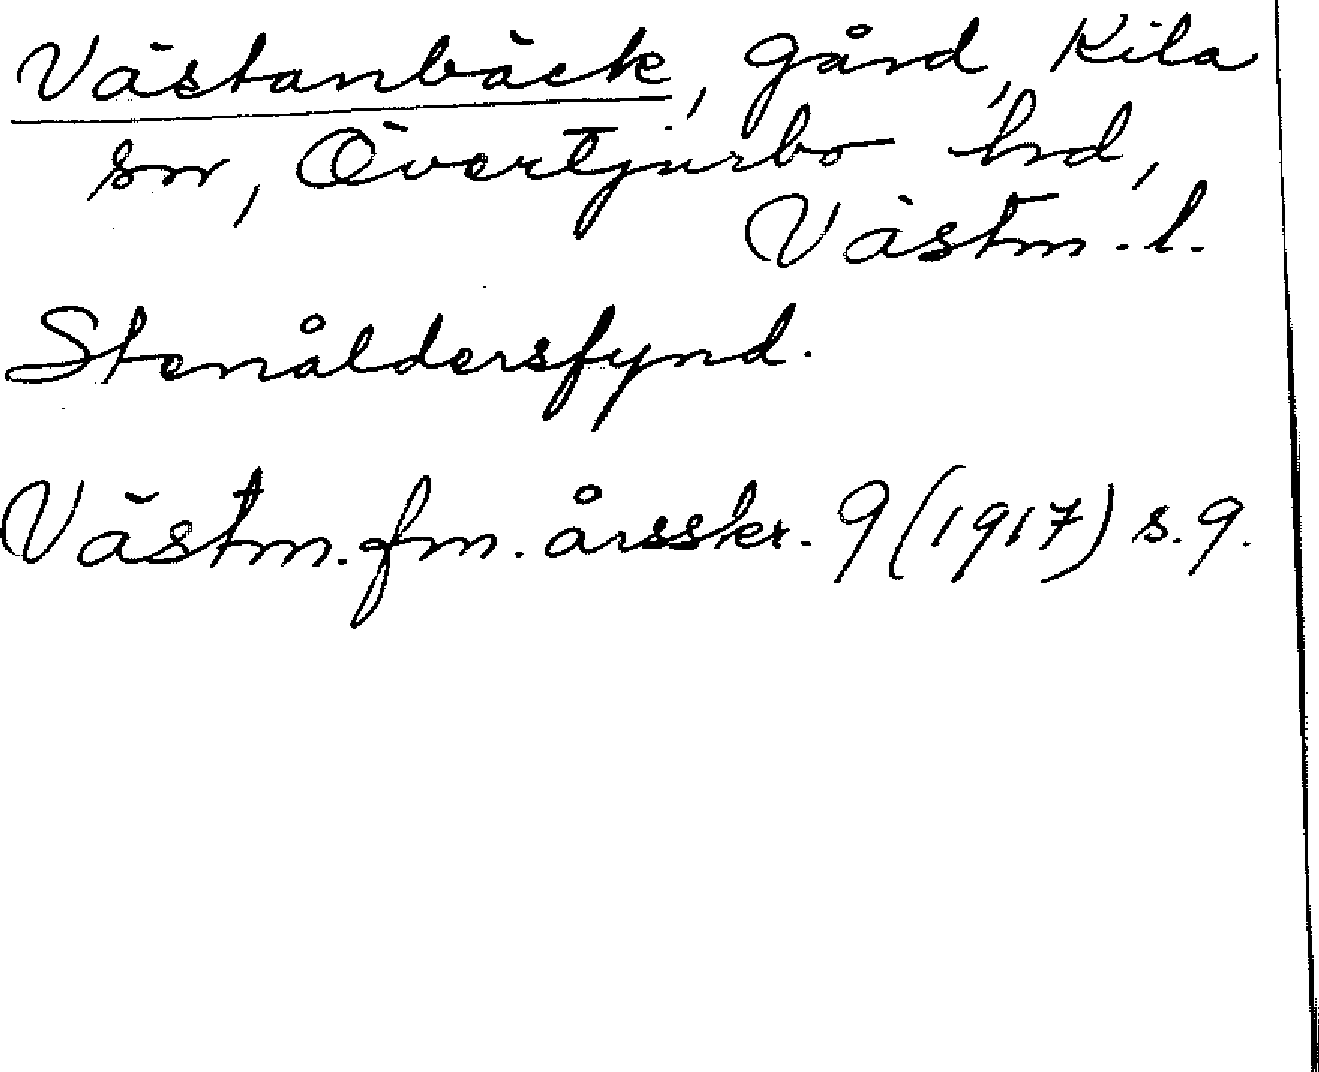 Västanbäck, gård, Kila
sn, Övertjurbo hd,
Västm. l.
Stenåldersfynd.
Västm. fm. årsskr. 9 (1917) s. 9.